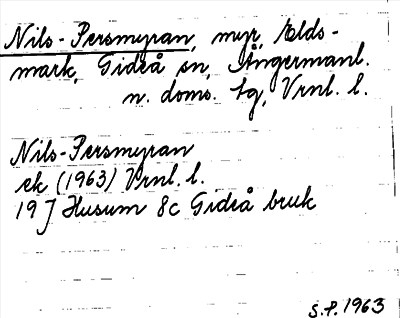 Nils-Persmyran, myr, Elds-
mark, Gideå sn, Ångermanl.
n. doms. tg, Vrnl. l.
Nils-Persmyran
ek (1963) Vrnl. l.
19 J Husum 8c Gideå bruk
S.P. 1963